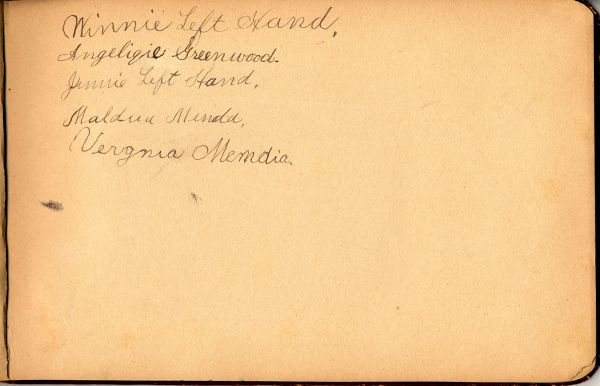 Winnie Left Hand,
Angeligie Greenwood.
Jennie Left Hand,
Maldua Menda,
Vergnia Memdia.